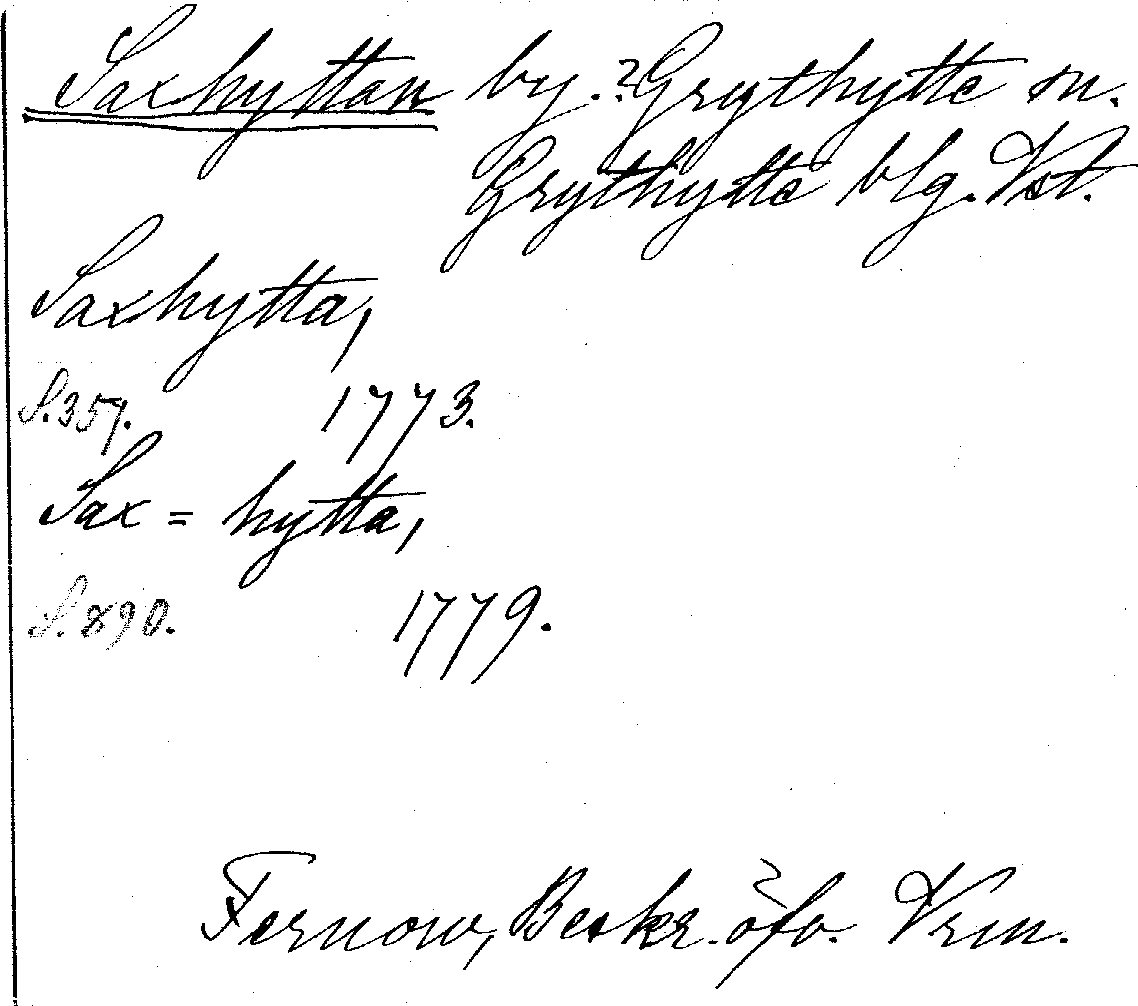 Saxhyttan by. ? Grythytte sn.
Grythytte blg. Vst.
Saxhytta,
S. 357. 1773.
Sax = hytta,
S. 890. 1779.
Fernow, Beskr. öfv. Vrm.